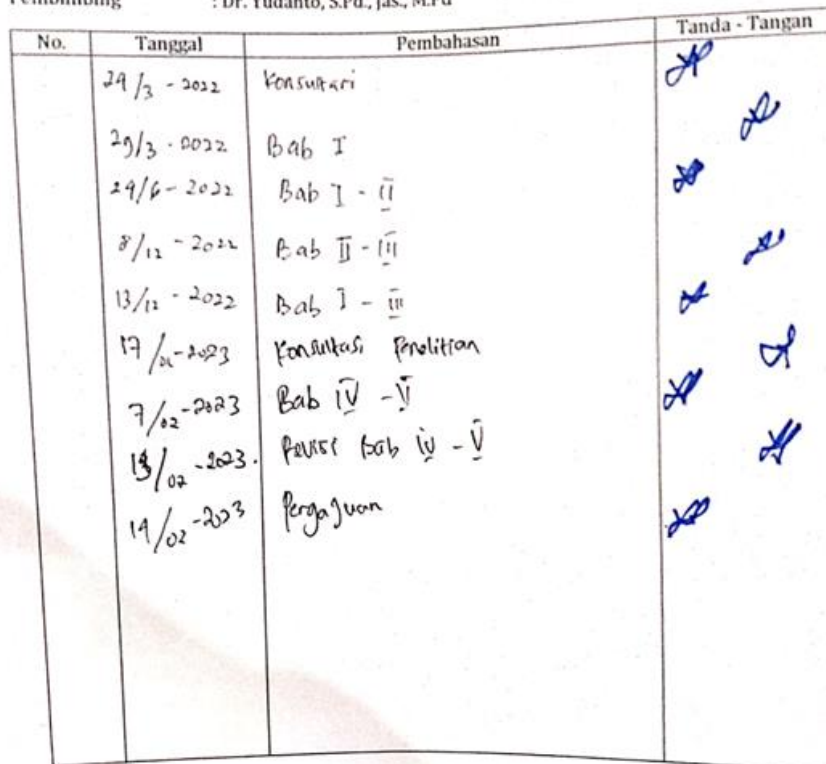 Pembimbing : Dr. Yudanto, S.Pd., Jas., M.Pd
No. Tanggal Pembahasan Tanda - Tangan
24/3 - 2022 Konsultasi
29/3 - 2022 Bab I
24/6 - 2022 Bab I - II
8/12 - 2022 Bab II - III
13/12 - 2022 Bab I - III
17/01-2023 Konsultasi Penelitian
7/02-2023 Bab IV - V
13/02-2023. Revisi Bab IV - V
14/02-2023 Pengajuan